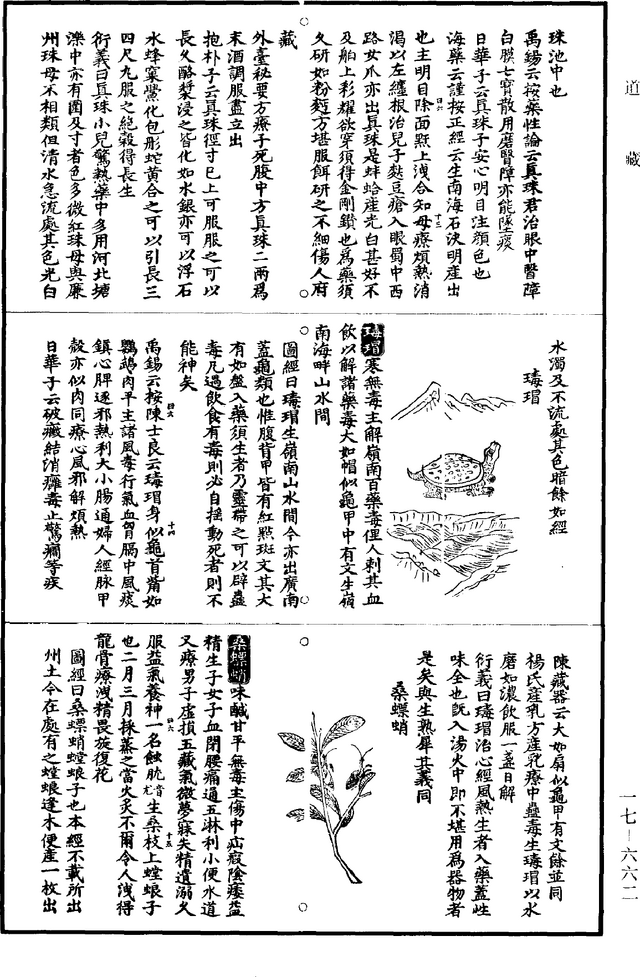 道藏
珠池中也
禹錫云按藥性論云真珠君治眼中瞖障
白膜七寶散用磨瞖障亦能墜痰
日華子云真珠子安心明目注顏色也
海藥云謹按正經云生南海石決明產出
也主明目除面䵟上洩合知母療煩熱消
渴以左纏根治兒子麩豆瘡入眼蜀中西
路女爪亦出真珠是蚌蛤產光白甚好不
及舶上彩耀欲穿須得金剛鑽也為藥須
久研如粉麪方堪服餌研之不細傷人府
藏
外臺秘要方療子死腹中方真珠二兩為
末酒調服盡立出
抱朴子云真珠徑寸已上可服服之可以
長久酪漿浸之皆化如水銀亦可以浮石
水蜂窠鱉化包彤蛇黃合之可以引長三
四尺丸服之絕穀得長生
衍義曰真珠小兒驚熱藥中多用河北塘
濼中亦有圍及寸者色多微紅珠母與廉
州珠母不相類但清水急流處其色光白
水濁及不流處其色暗餘如經
瑇瑁
瑇瑁寒無毒主解嶺南百藥毒俚人刺其血
飲以解諸藥毒大如帽似龜甲中有文生嶺
南海畔山水間
圖經曰瑇瑁生嶺南山水間今亦出廣南
蓋龜類也惟腹背甲皆有紅點斑文其大
有如盤入藥須生者乃靈帶之可以辟蠱
毒凡遇飲食有毒則必自搖動死者則不
能神矣
禹錫云按陳士良云瑇瑁身似龜首觜如
鸚鵡肉平主諸風毒行氣血胷膈中風痰
鎮心脾逐邪熱利大小腸通婦人經脉甲
殼亦似肉同療心風邪解煩熱
日華子云破癥結消癰毒止驚癇等疾
陳藏器云大如扇似龜甲有文餘並同
楊氏產乳方產乳療中蠱毒生瑇瑁以水
磨如濃飲服一盞日解
衍義曰瑇瑁治心經風熱生者入藥蓋性
味全也既入湯火中即不堪用為器物者
是矣與生熟犀其義同
桑螵蛸
桑螵蛸味鹹甘平無毒主傷中疝瘕陰痿益
精生子女子血閉腰痛通五淋利小便水道
又療男子虛損五藏氣微夢寐失精遺溺久
服益氣養神一名蝕肬生桑枝上螳蜋子
也二月三月採蒸之當火炙不爾令人洩得
龍骨療洩精畏旋復花
圖經曰桑螵蛸螳蜋子也本經不載所出
州土今在處有之螳蜋逢木便產一枚出
一七—六六二